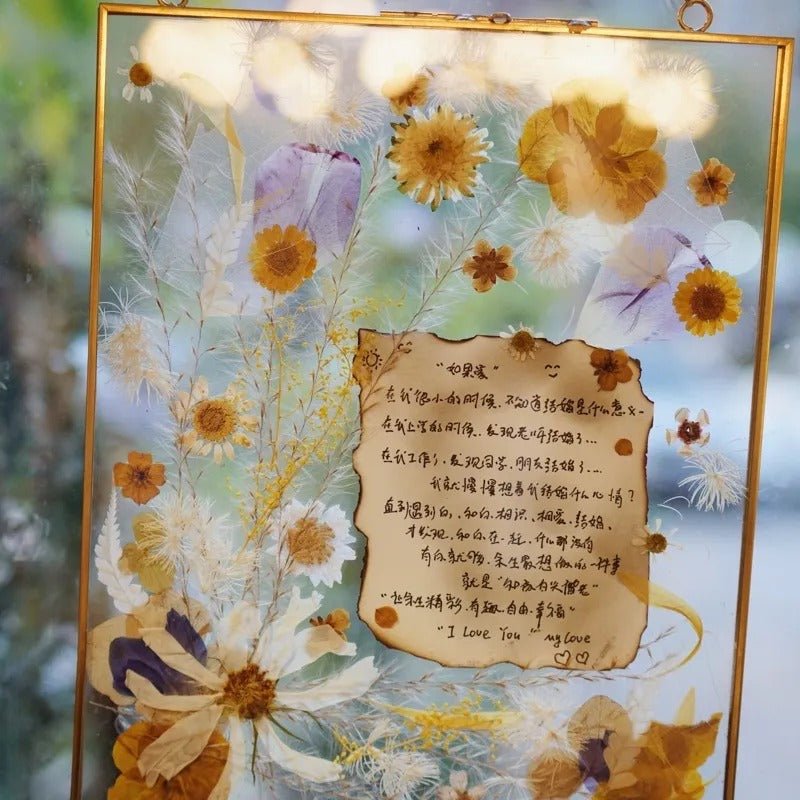 "如果爱"
在我很小的时候、不知道结婚是什么意义-
在我上学的时候、发现老师结婚了...
在我工作了、发现同学、朋友结婚了...
我就慢慢想着我结婚什么心情？
直到遇到你、和你相识、相爱、结婚、
才发现、和你在一起、什么都没有
有你就够、余生最想做的一件事
就是"和你白头偕老"
"让余生精彩、有趣、自由、幸福"
"I Love You" my love